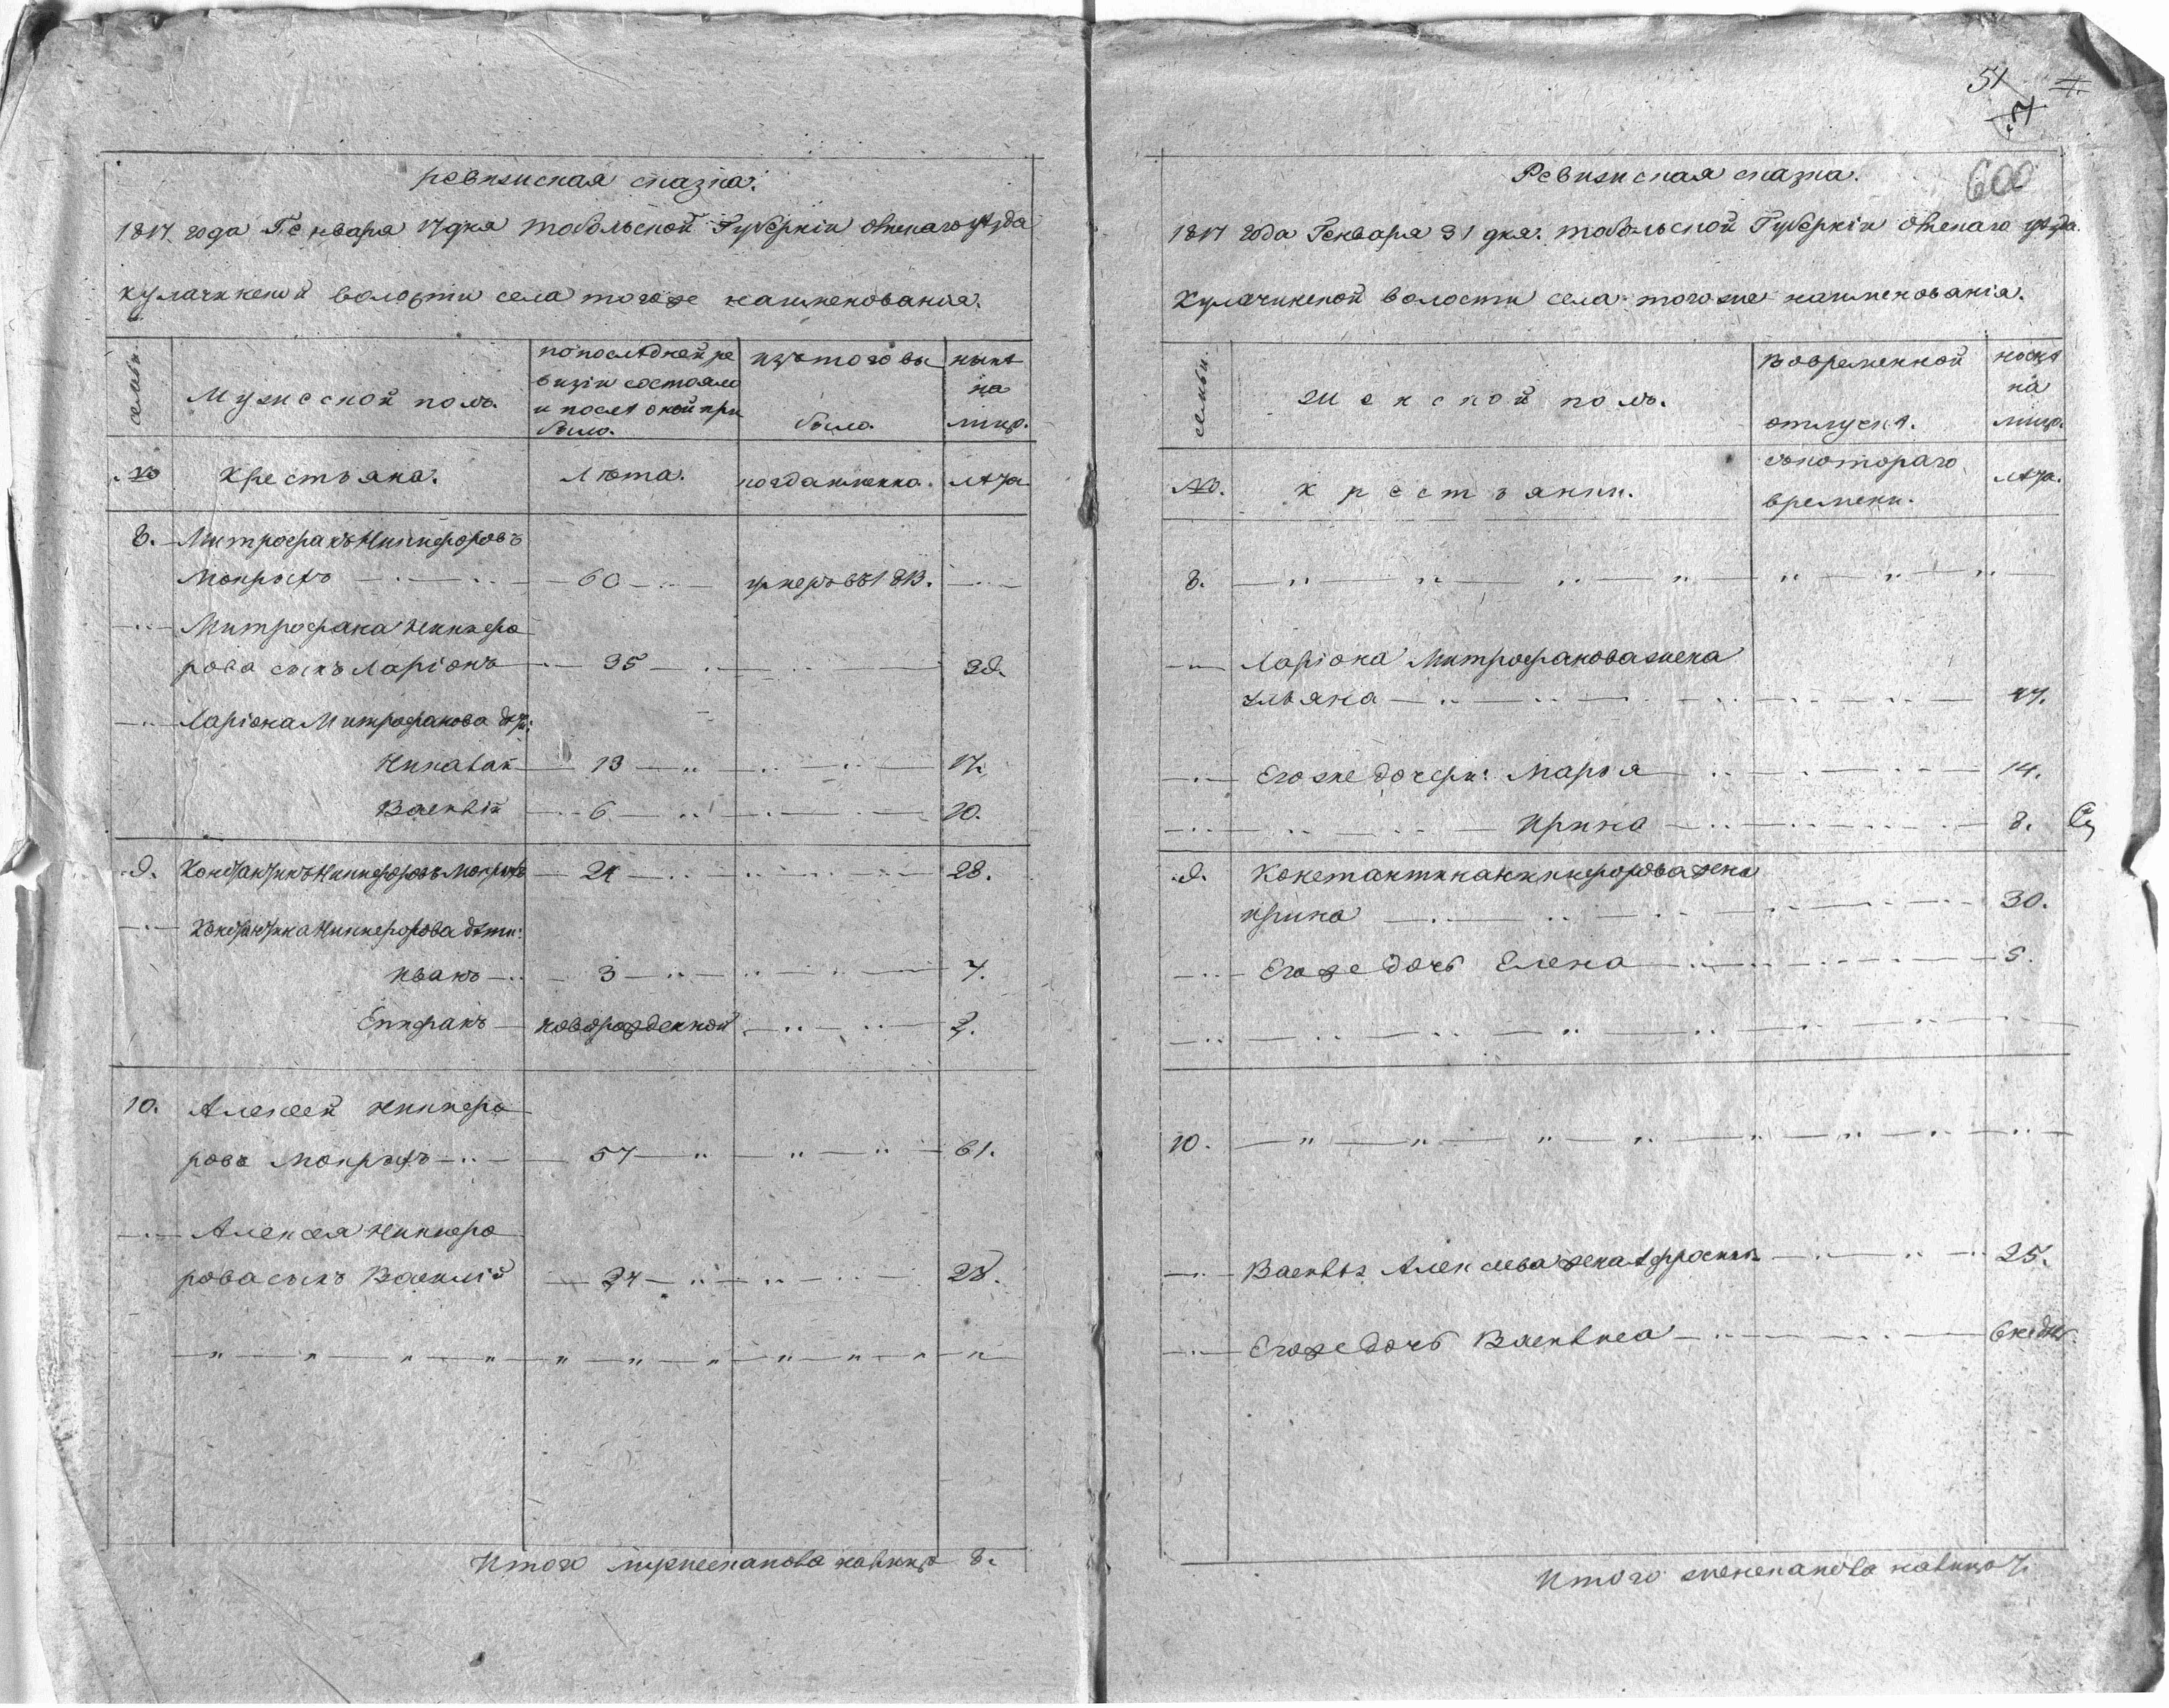 ревизская сказка.
1817. года Генваря 17 дня Тобольской Губернiи Омскаго уѣзда
Кулачинской волости села тогоже наименованiя.
семьи.
Мужеской полъ.
по последней ре
визiи состояло
и после оной при
было.
изъ того вы
было.
нынѣ
на
лицо.
№
Крестьяна.
Лѣта.
когда имянно.
лѣта.
8. Митрофанъ Никифоровъ
Мокрыхъ 60 умеръ въ 1813.
Митрофана Никифо
рова сынъ Ларiонъ 35 39.
Ларiона Митрофанова дѣти:
Николай 13 17.
Василiй 6 10.
9. Констянтинъ Никифоровъ Мокрыхъ 24 28.
Констянтина Никифорова дѣти:
Иванъ 3 7.
Епифанъ новорожденной 2.
10. Алексей Никифо
ровъ Мокрыхъ 57 61.
Алексея Никифо
рова сынъ Василiй 24 28.
Итого мужескаго налицо 8.
51
600
Ревизская сказка.
1817 года Генваря 31 дня. Тобольской Губернiи Омскаго уѣзда.
Кулачинской волости села тогоже наименованiя.
семьи.
Женской полъ.
Во временной
отлучкѣ.
нынѣ
на
лицо.
№.
крестьянки.
съ котораго
времени.
лѣта.
8.
Ларiона Митрофанова жена
Ульяна 47.
Егоже дочери: Марья 14.
Ирина 8.
9. Константина Никифорова жена
Ирина 30.
Егоже дочь Елена 5.
10.
Василья Алексеева жена Афросинья 25.
Егоже дочь Василиса 6 недѣль.
Итого женскаго налицо 7.